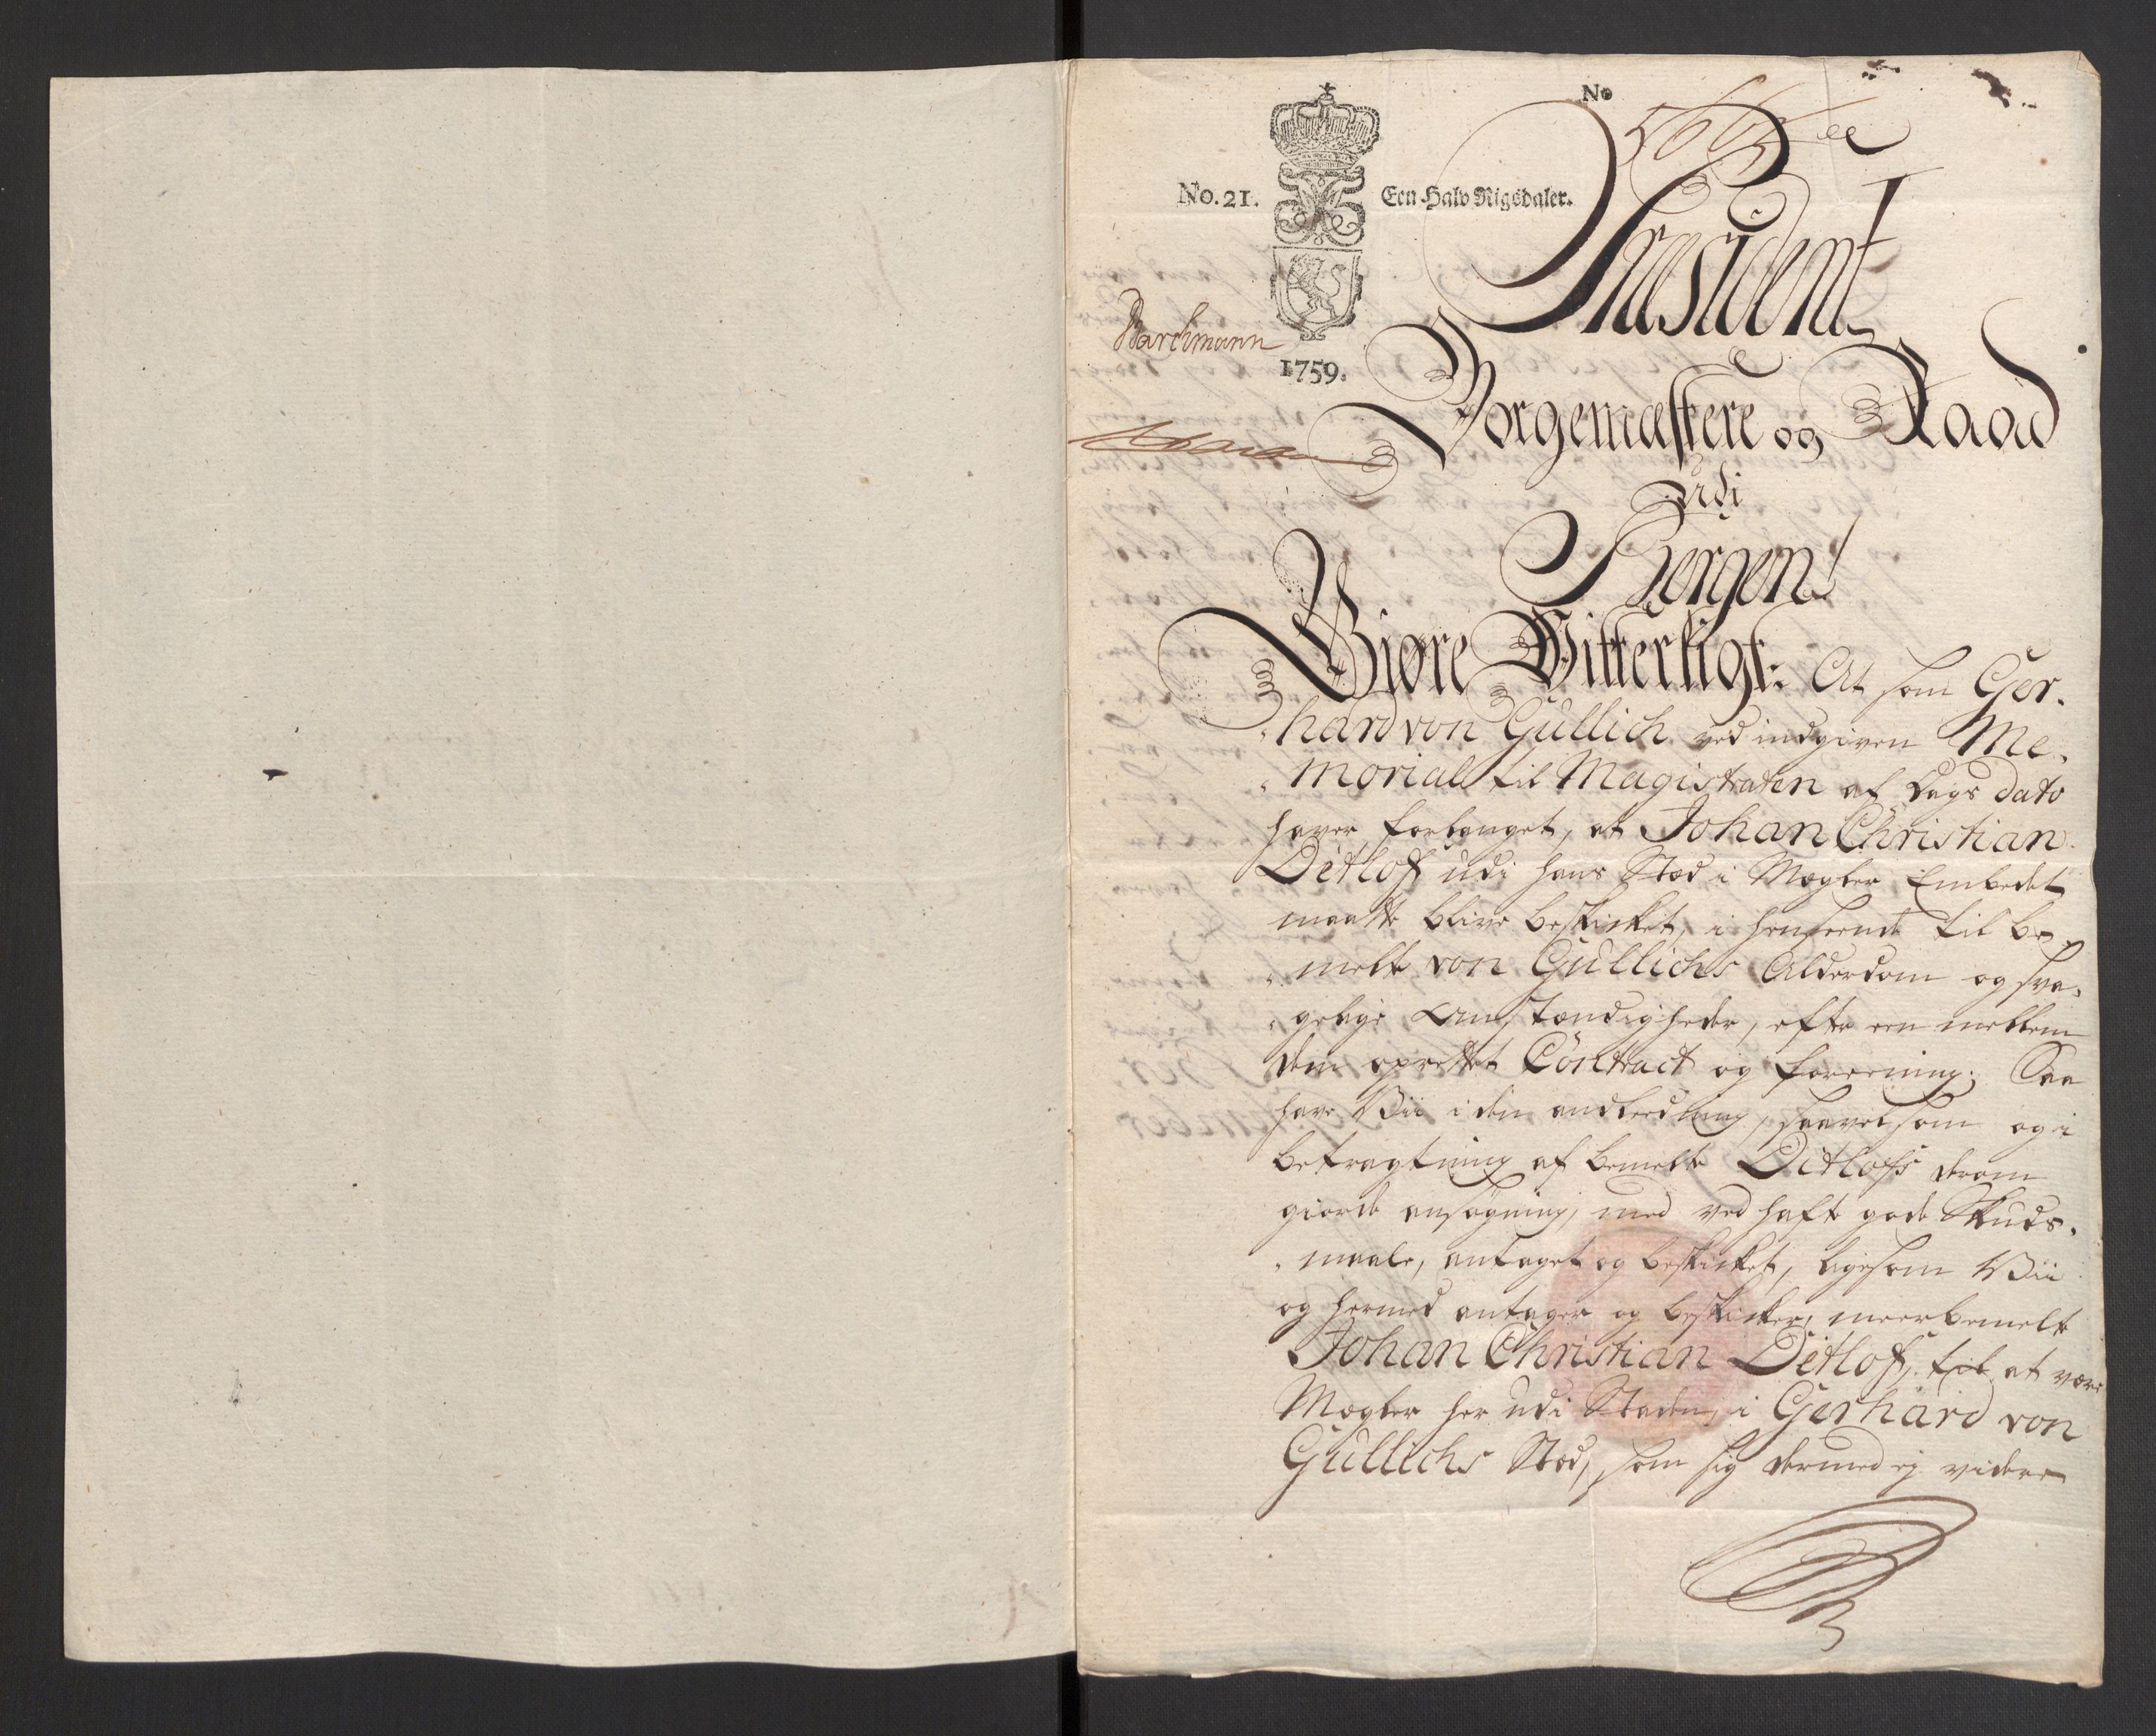 No
No. 21. Een Halv Rigsdaler.
Præsident
Barchmann
1759.
Borgemæstere og Raad
udi
Bergen
Giøre Vitterligt: At som Ger-
hard von Güllich ved indgiven Me-
morial til Magistraten af Dags dato
haver forlanget, at Johan Christian
Ditlof udi hans Stæd i Mægler Embedet
maatte blive beskikket, i henseende til be-
melte von Güllichs Alderdom og sva-
gelige Omstændigheder, efter een mellem
dem oprettet Contract og foreening; Saa
have Vii i den anledning, saavelsom og i
betragtning af bemelte Ditlofs derom
giorde ansøgning, med vedhæfte gode Skuds-
maale, antaget og beskikket, ligesom Vii
og hermed antager og beskikker, meerbemelte
Johan Christian Ditlof, til at være
Mægler her udi Staden, i Gerhard von
Güllichs Stæd, som sig dermed ej videre